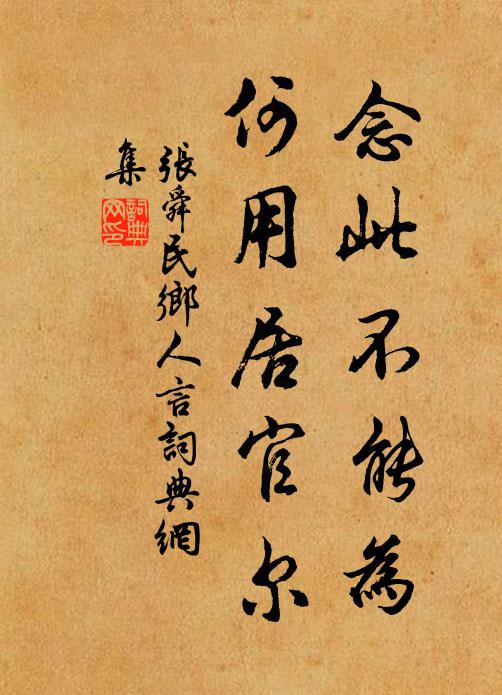 念此不能為
何用居官尔
張舜民鄉人言詞典網
集
詞典網印